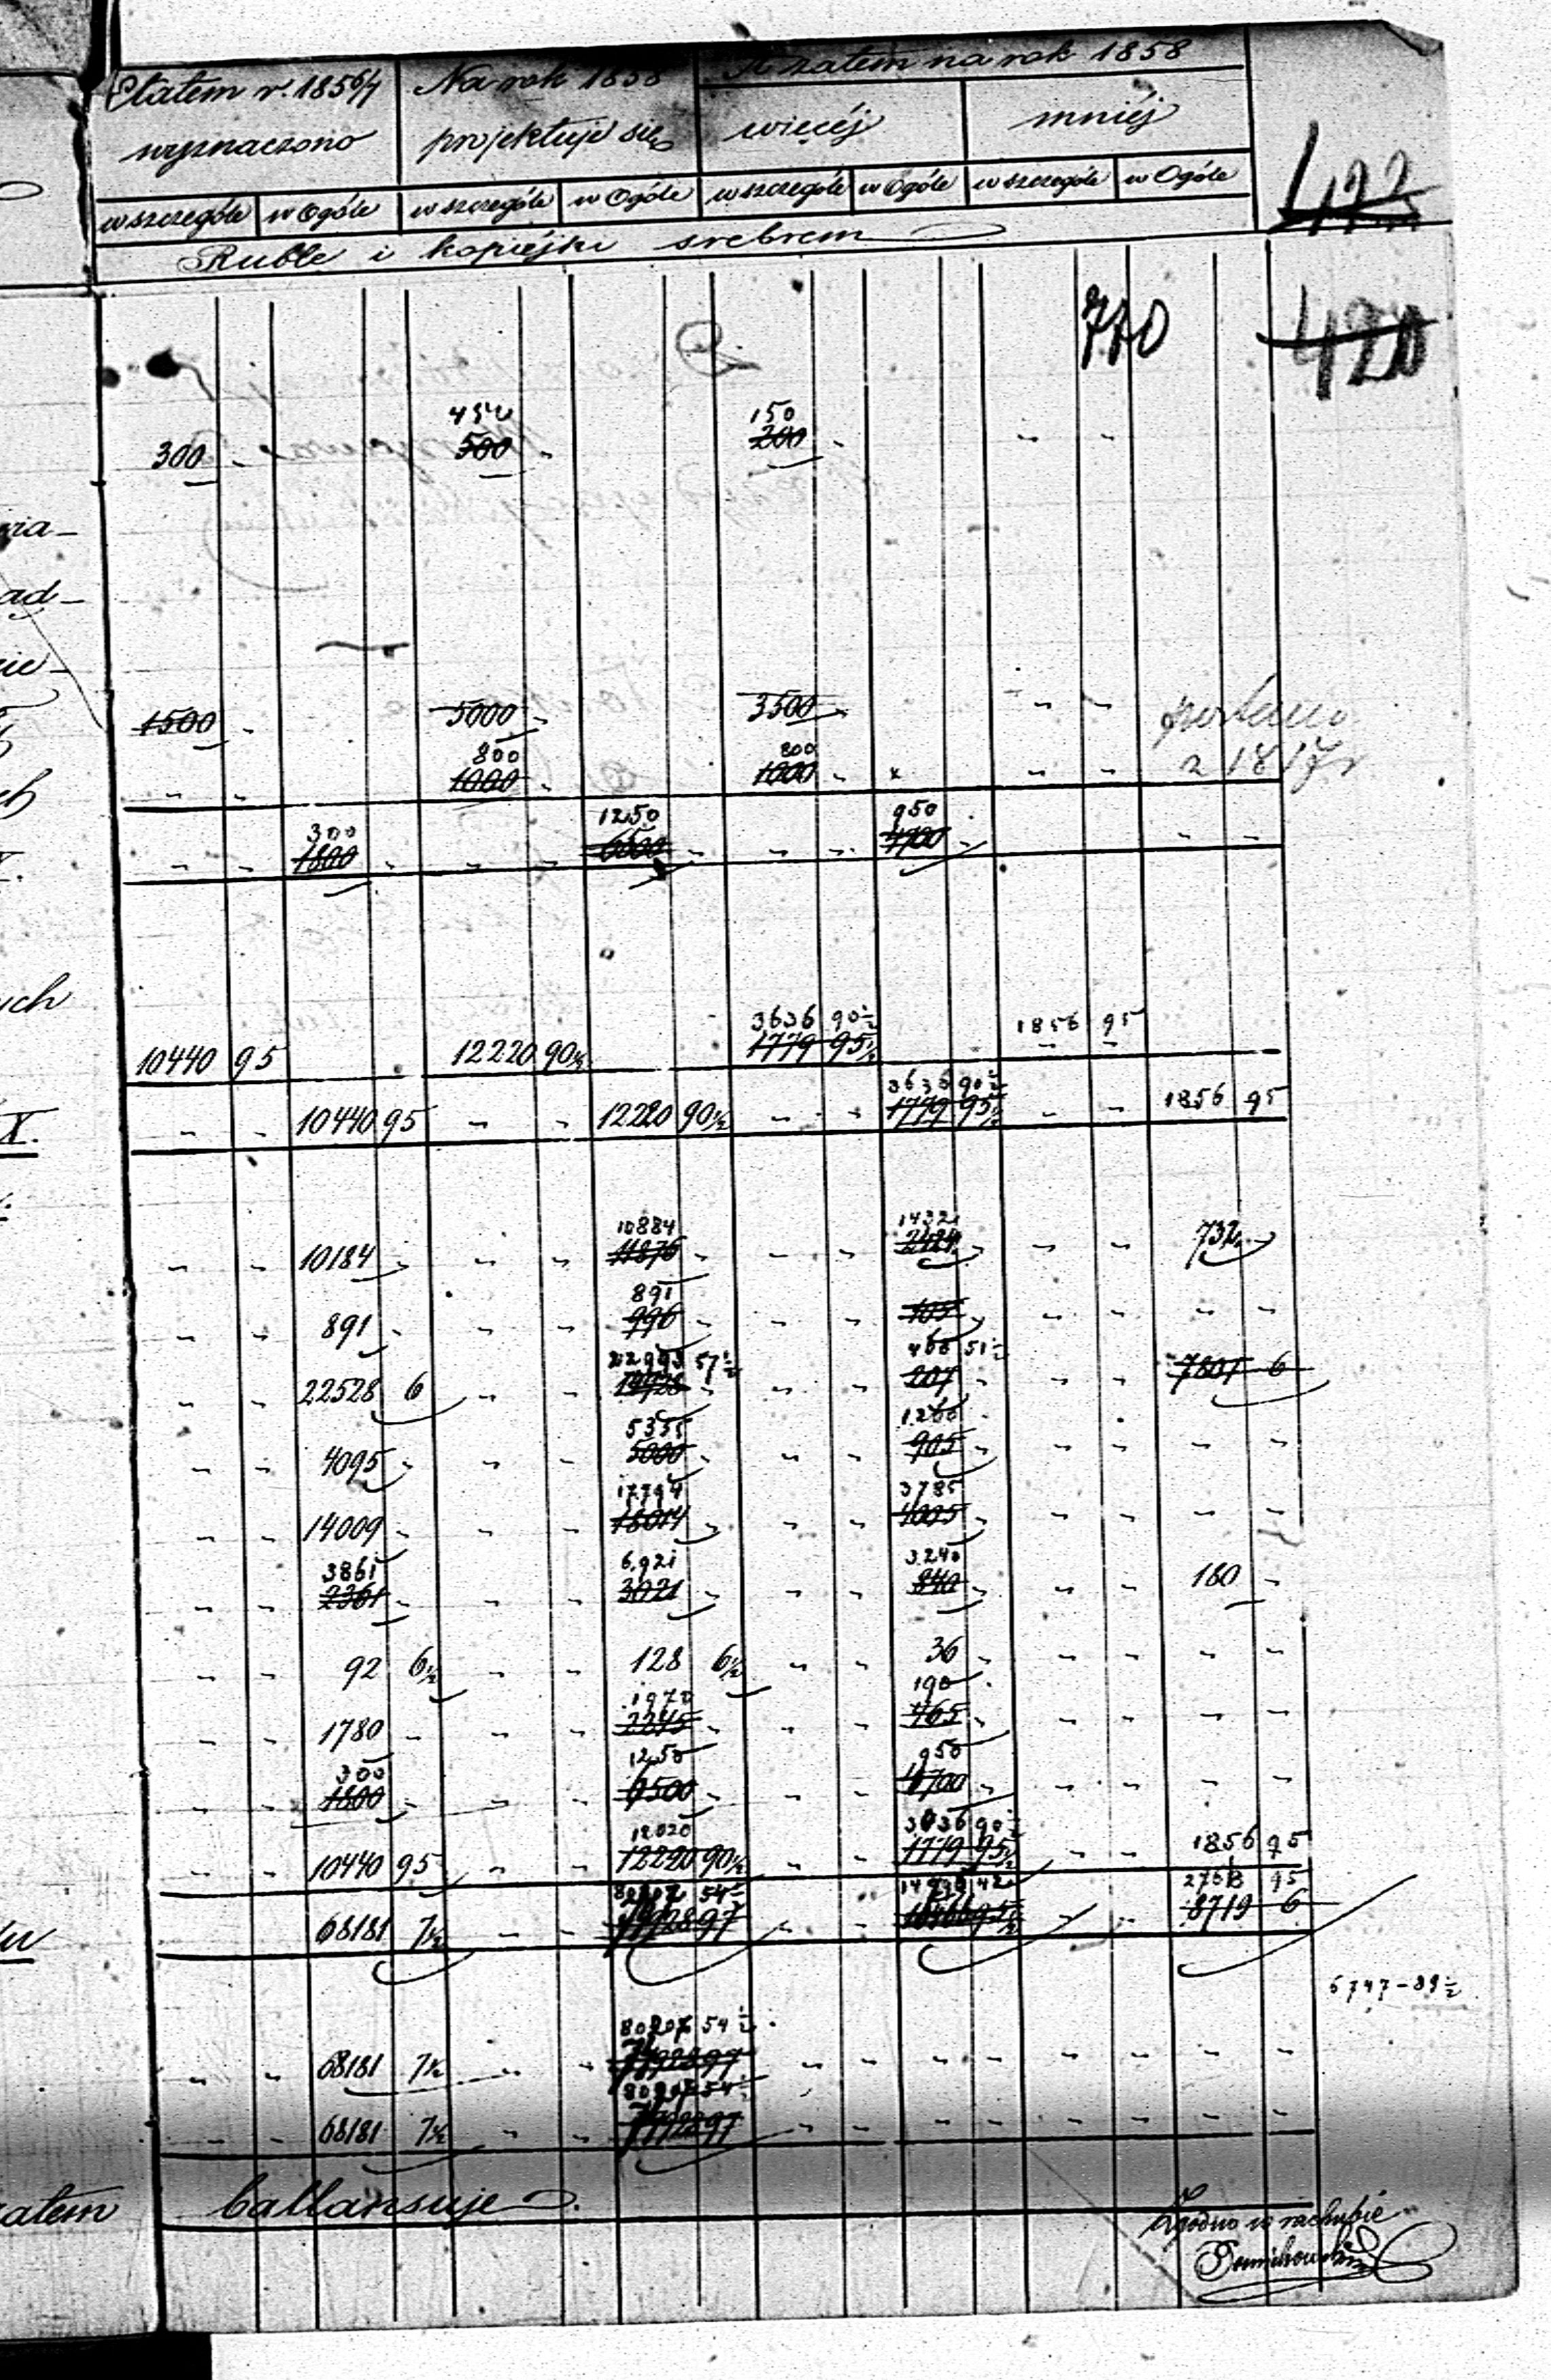 Etatem r. 1856/7 Na rok 1858 A zatem na rok 1858
wyznaczono projektuje się więcéj mniéj
w szczególe w Ogóle w szczególe w Ogóle w szczególe w Ogóle w szczególe w Ogóle
422
Ruble i kopiéjki srebrem
710 420
450 150
300 - 500 - 200 - - -
wia-
ad-
nie-
1500 - 5000 - 3500 - - -
800 800
- - 1000 - 1000 - - - z 1817r
300 1250 950
- - 1800 - - - 6500 - - - 4700 - - -
ych
3636 90½ 1856 95
10440 95 12220 90½ 1779 95½ - -
3636 90½
X. - - 10440 95 - - 12220 90½ - - 1779 95½ - - 1856 95
10884 1432
- - 10184 - - - 11876 - - - 2424 - - - 732 -
891
- - 891 - - - 996 - - - 105 - - - - -
22993 57½ 466 51½
- - 22528 6 - - - - - 207 - 7801 6
5355 1260
- - 4095 - - - 5000 - - - 905 - - - - -
17794 3785
- - 14009 - - - 18014 - - - 4005 - - - - -
3861 6921 3240
- - 2361 - - - 3021 - - - 840 - - - 180 -
- - 92 6½ - - 128 6½ - - 36 - - -
1970 190
- - 1780 - - - 2245 - - - 465 - - - - -
300 1250 950
- - 1800 - - - 6500 - - - 4700 - - - - -
12020 3636 90½
- - 10440 95 - - 12220 90½ - - 1779 95½ 1856 95
54½ 2768 95
68181 7½ - - - 8719 6
6747-89½
54½
- - 68181 7½ - - - - - - - - - -
54½
- - 68181 7½ - - - - - - - - - -
zatem ballansuje
Zgodno w rachubie